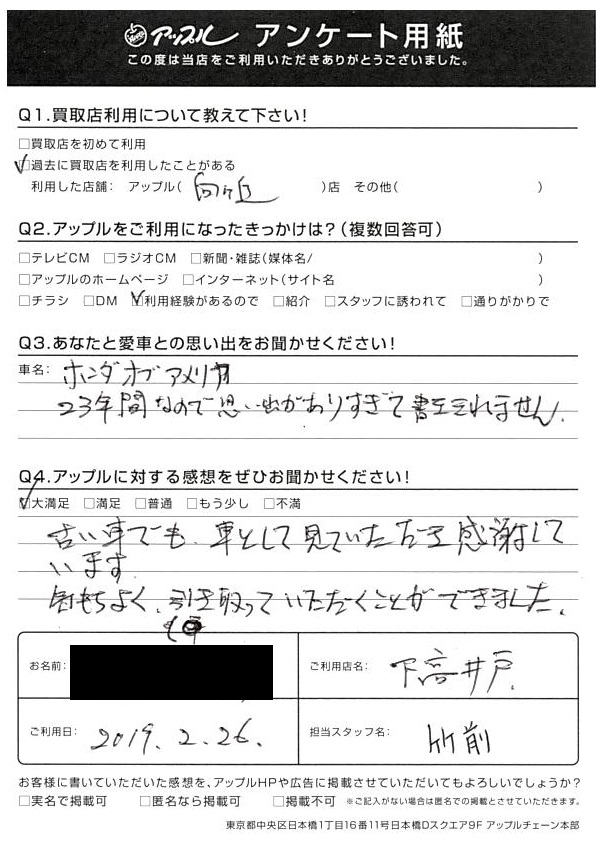 アップル アンケート用紙
この度は当店をご利用いただきありがとうございました。
Q1.買取店利用について教えて下さい!
□買取店を初めて利用
☑過去に買取店を利用したことがある
利用した店舗: アップル( 向ヶ丘 )店 その他( )
Q2.アップルをご利用になったきっかけは?(複数回答可)
□テレビCM □ラジオCM □新聞・雑誌(媒体名/ )
□アップルのホームページ □インターネット(サイト名 )
□チラシ □DM ☑利用経験があるので □紹介 □スタッフに誘われて □通りがかりで
Q3.あなたと愛車との思い出をお聞かせください!
車名: ホンダオブアメリカ
23年間なので思い出がありすぎて書ききれません。
Q4.アップルに対する感想をぜひお聞かせください!
☑大満足 □満足 □普通 □もう少し □不満
古い車でも、車として見ていただき感謝して
います。
気もちよく、引き取っていただくことができました。
お名前:
ご利用店名: 下高井戸
ご利用日: 2019.2.26.
担当スタッフ名: 竹前
お客様に書いていただいた感想を、アップルHPや広告に掲載させていただいてもよろしいでしょうか?
□実名で掲載可 □匿名なら掲載可 □掲載不可 ※ご記入がない場合は匿名での掲載とさせていただきます。
東京都中央区日本橋1丁目16番11号日本橋Dスクエア9F アップルチェーン本部